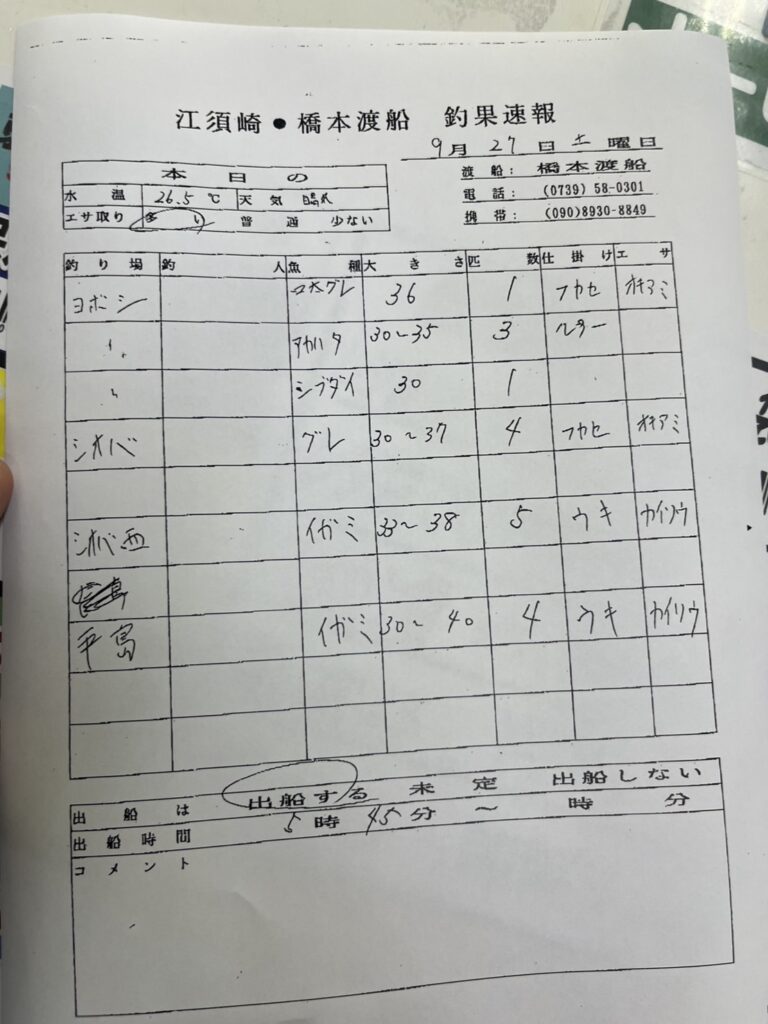 江須崎・橋本渡船 釣果速報
9月 27日 土曜日
渡船: 橋本渡船
電話: (0739) 58-0301
携帯: (090)8930-8849
本日の
水温 26.5℃ 天気
エサ取り 多い 普通 少ない
釣り場 釣人 魚種 大きさ 匹数 仕掛け エサ
ヨボシ 口太グレ 36 1 フカセ オキアミ
〃 アカハタ 30~35 3 ルアー
〃 シブダイ 30 1
シオバ グレ 30~37 4 フカセ オキアミ
シオバ西 イガミ 33~38 5 ウキ カイソウ
平島 イガミ 30~40 4 ウキ カイソウ
出船は 出船する 未定 出船しない
出船時間 5時45分~ 時 分
コメント